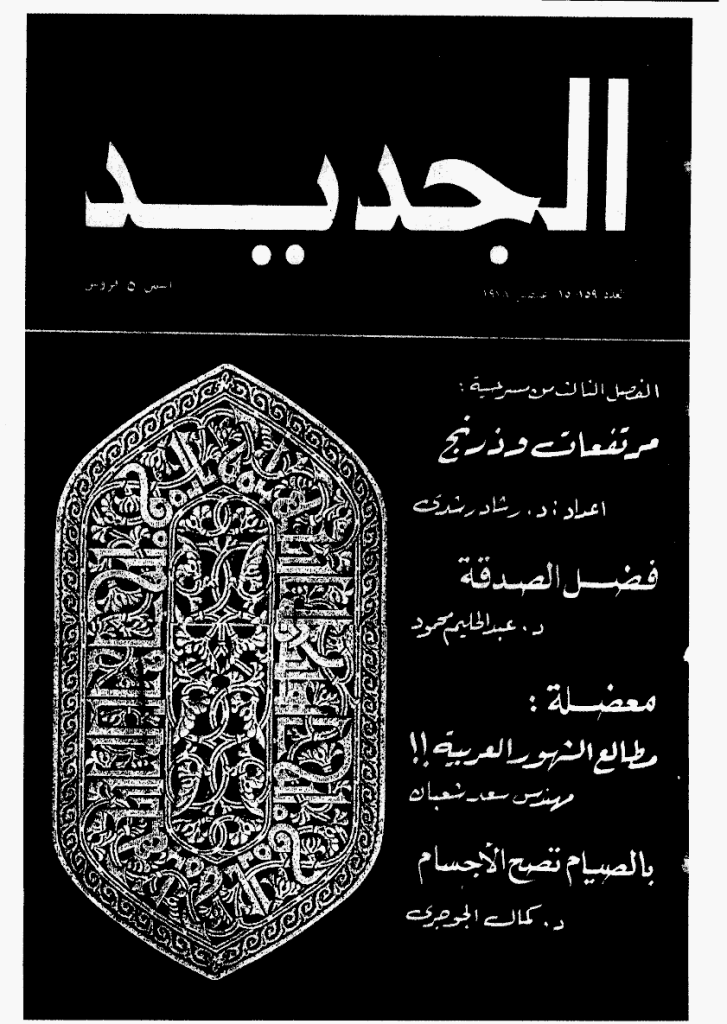 الجديد
العدد ١٥٩ ١٥
الثمن ٥ قروش
الفصل الثالث من مسرحية :
مرتفعات وذرنج
اعداد : د. رشاد رشدى
فضل الصدقة
د. عبدالحليم محمود
معضلة :
مطالع الشهور العربية !!
مهندس سعد شعبان
بالصيام تصح الأجسام
د. كمال الجوجرى